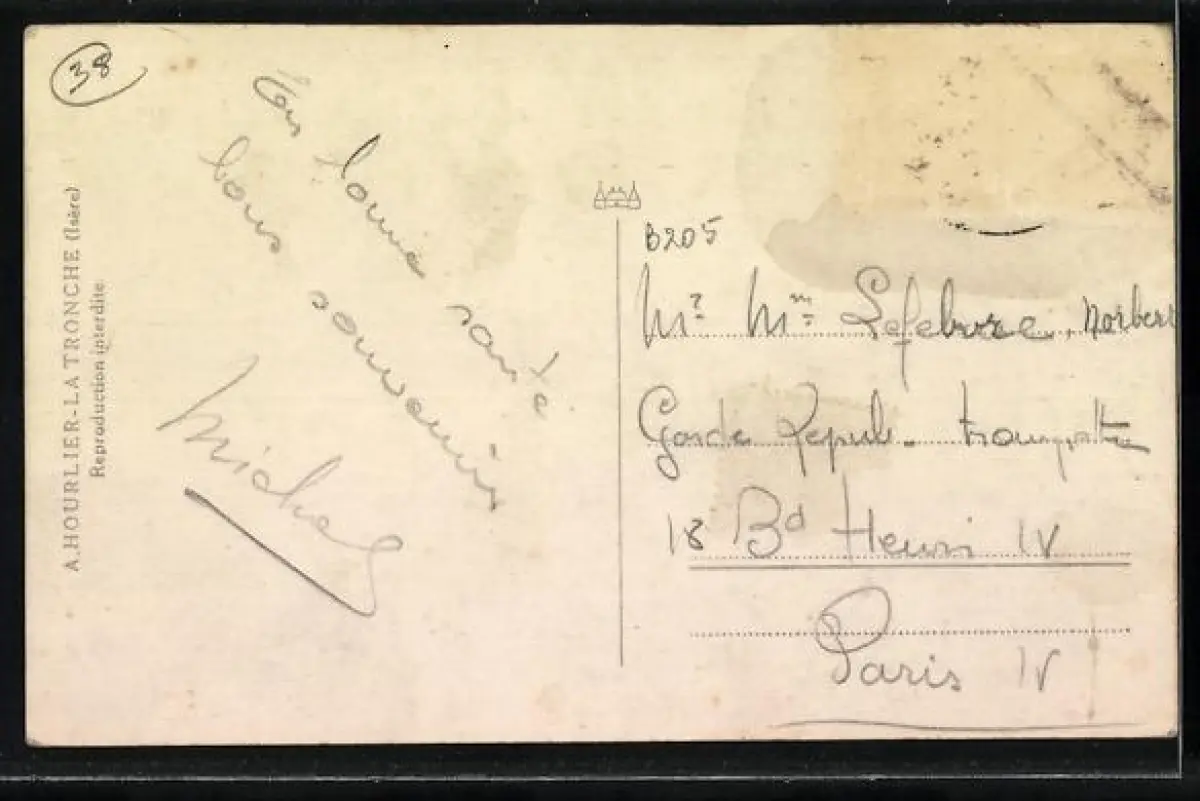 38
En bonne santé
bons souvenirs
Michel
A. HOURLIER - LA TRONCHE (Isère)
Reproduction interdite
B205
Mr Mme Lefebvre Norbert
Garde Repub.
18 Bd Henri IV
Paris IV